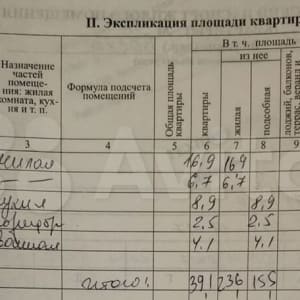 II. Экспликация площади квартир
Назначение частей помеще- ния: жилая комната, кух- ня и т. п.
Формула подсчета помещений
Общая площадь квартиры
В т. ч. площадь
из нее
квартиры
жилая
подсобная
лоджий, балконов, террас, веранд и
3 4 5 6 7 8 9
жилая 16,9 16,9
6,7 6,7
кухня 8,9 8,9
коридор 2,5 2,5
4,1 4,1
итого: 39,1 23,6 15,5